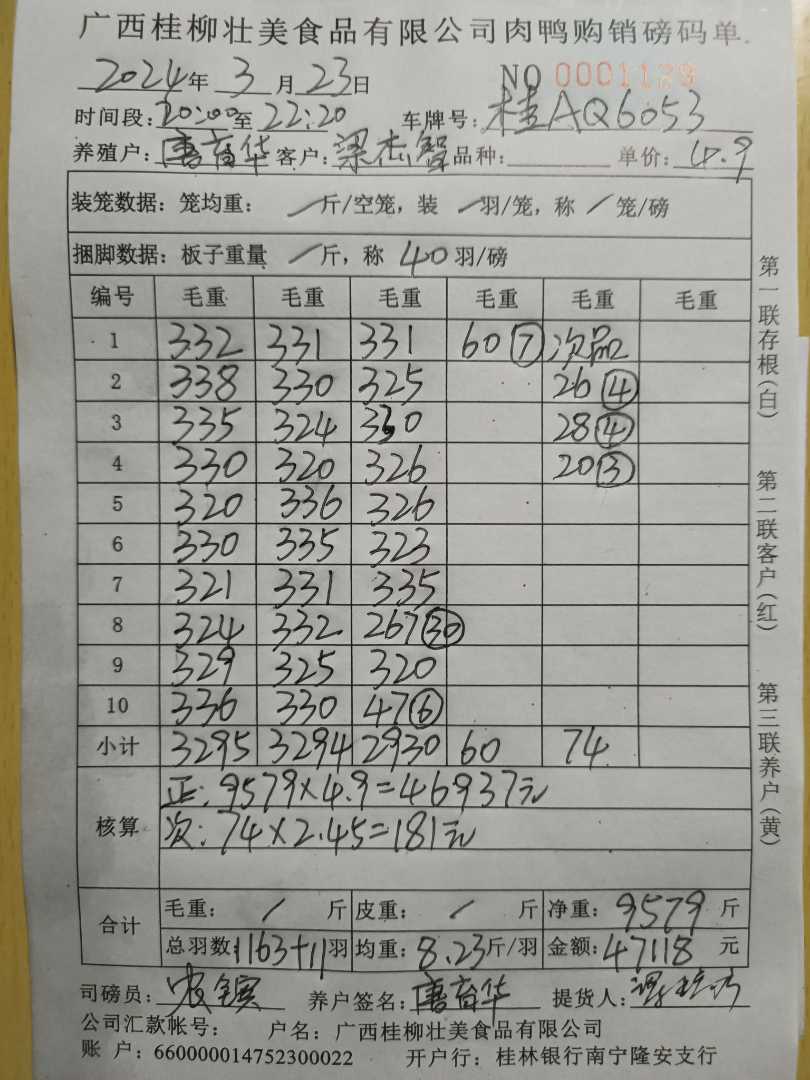 广西桂柳壮美食品有限公司肉鸭购销磅码单
2024年 3 月 23 日 NO 0001129
时间段:20:00至22:20 车牌号:桂AQ6053
养殖户:唐育华 客户:梁杰智 品种: 单价:4.9
装笼数据:笼均重: / 斤/空笼,装 / 羽/笼,称 / 笼/磅
捆脚数据:板子重量 / 斤,称 40 羽/磅
编号 毛重 毛重 毛重 毛重 毛重 毛重
1 332 331 331 60⑦ 次品
2 338 330 325 26④
3 335 324 330 28④
4 330 320 326 20③
5 320 336 326
6 330 335 323
7 321 331 335
8 324 332 267㉚
9 329 325 320
10 336 330 47⑥
小计 3295 3294 2930 60 74
核算 正:9579×4.9=46937元
次:74×2.45=181元
合计 毛重: / 斤 皮重: / 斤 净重:9579斤
总羽数1163+11羽 均重:8.23斤/羽 金额:47118 元
司磅员: 养户签名:唐育华 提货人:
公司汇款帐号: 户名:广西桂柳壮美食品有限公司
账 户:660000014752300022 开户行:桂林银行南宁隆安支行
第一联存根(白)
第二联客户(红)
第三联养户(黄)